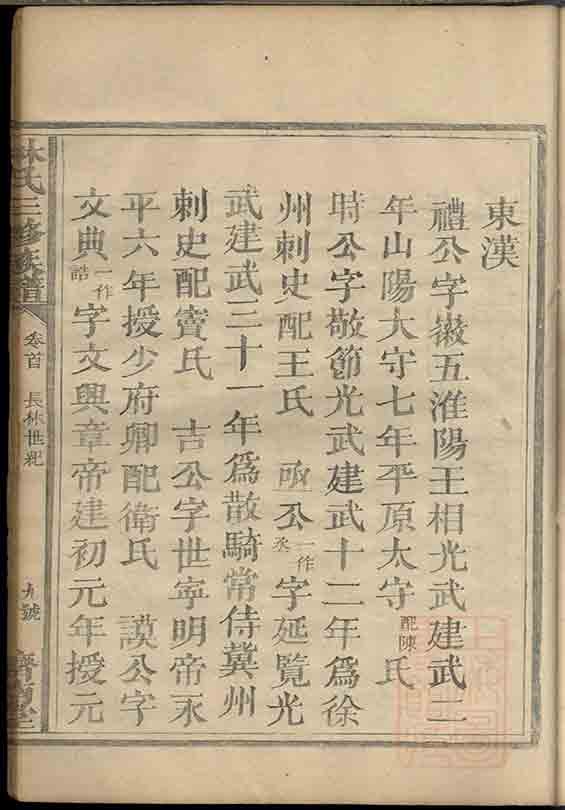 東漢
禮公字嶽五淮陽王相光武建武二
年山陽大守七年平原太守配陳氏
時公字敬節光武建武十二年爲徐
州刺史配王氏 亟公一作烝字延覽光
武建武三十一年爲散騎常侍冀州
刺史配竇氏 吉公字世寧明帝永
平六年授少府卿配衛氏 謨公字
文典一作誥字文興章帝建初元年授元
林氏三修族譜 卷首 長林世紀 九號